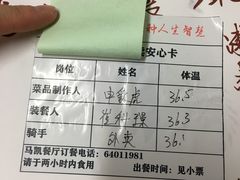 种人生智慧
安心卡
岗位 姓名 体温
菜品制作人 申 虎 36.5
装餐人 崔科 36.3
骑手 外卖 36.
马凯餐厅订餐电话：64011981
请于两小时内食用 出餐时间：见小票